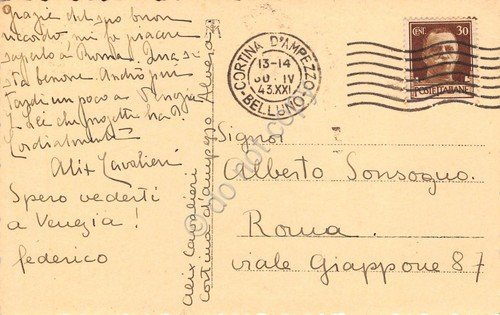 Grazie del suo buon
ricordo, mi fa piacere
saperlo a Roma. Qua si
sta benone. Andrò più
tardi un poco a Venezia
E lei che progetti ha?
Cordialmente
Alix Cavalieri
Spero vederti
a Venezia!
federico
Alix Cavalieri
Cortina d'Ampezzo
CORTINA D'AMPEZZO
13-14
30·IV
43.XXI
BELLUNO
CENT. 30
POSTE ITALIANE
Signor
Alberto Sonsogno
Roma
viale Giappone 87
do not copy